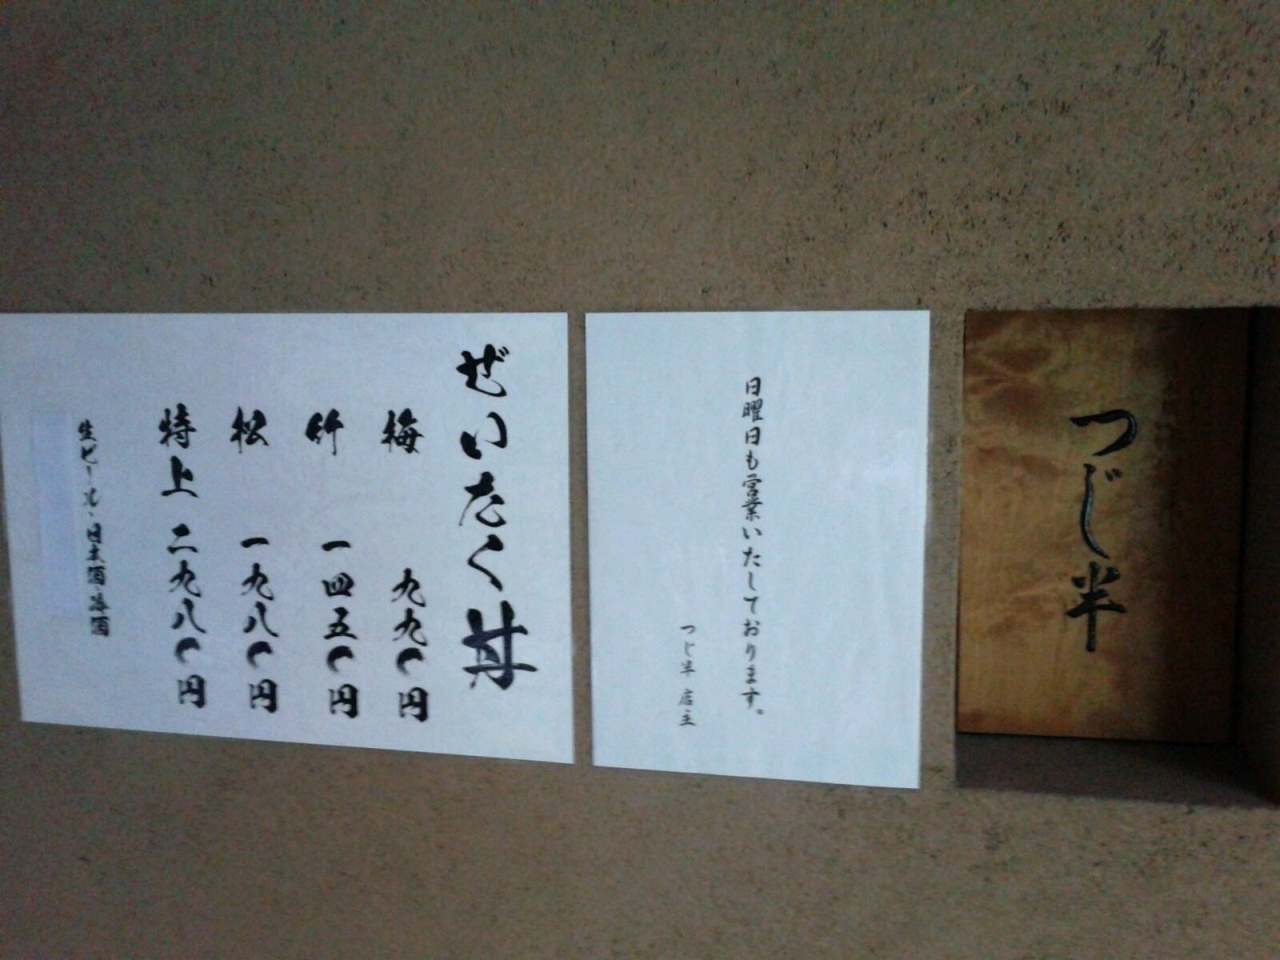 つじ半
日曜日も営業いたしております。
つじ半 店主
ぜいたく丼
梅 九九〇円
竹 一四五〇円
松 一九八〇円
特上 二九八〇円
生ビール、日本酒、梅酒